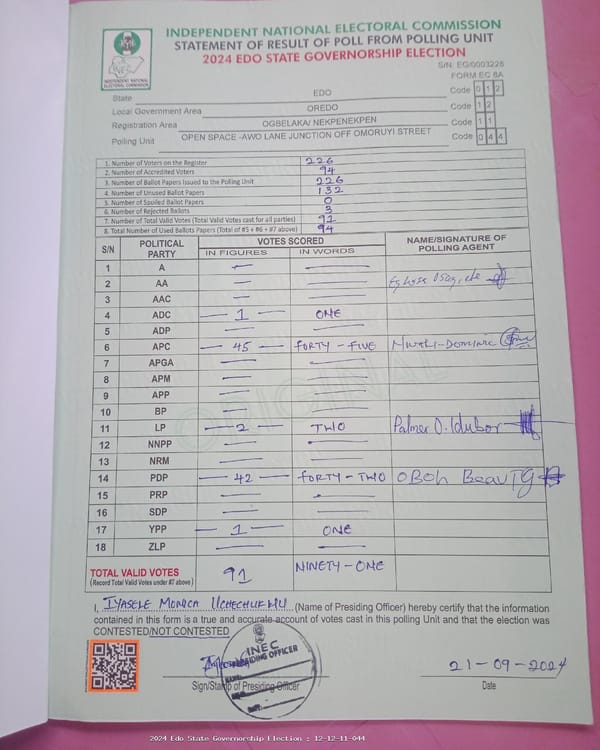 INDEPENDENT NATIONAL ELECTORAL COMMISSION
STATEMENT OF RESULT OF POLL FROM POLLING UNIT
2024 EDO STATE GOVERNORSHIP ELECTION
S/N: EG/0003228
FORM EC 8A
INEC
INDEPENDENT NATIONAL ELECTORAL COMMISSION
State EDO Code 0 1 2
Local Government Area OREDO Code 1 2
Registration Area OGBELAKA/ NEKPENEKPEN Code 1 1
Polling Unit OPEN SPACE -AWO LANE JUNCTION OFF OMORUYI STREET Code 0 4 4
1. Number of Voters on the Register 226
2. Number of Accredited Voters 94
3. Number of Ballot Papers Issued to the Polling Unit 226
4. Number of Unused Ballot Papers 132
5. Number of Spoiled Ballot Papers 0
6. Number of Rejected Ballots 3
7. Number of Total Valid Votes (Total Valid Votes cast for all parties) 91
8. Total Number of Used Ballots Papers (Total of #5 + #6 + #7 above) 94
S/N POLITICAL PARTY VOTES SCORED NAME/SIGNATURE OF POLLING AGENT
IN FIGURES IN WORDS
1 A — —
2 AA — —
3 AAC — —
4 ADC — 1 — ONE
5 ADP — —
6 APC — 45 — FORTY - FIVE
7 APGA — —
8 APM — —
9 APP — —
10 BP — —
11 LP — 2 — TWO Palmer O. Idubor
12 NNPP — —
13 NRM — —
14 PDP — 42 — FORTY - TWO OBOh BeauTy
15 PRP — —
16 SDP — —
17 YPP — 1 — ONE
18 ZLP — —
TOTAL VALID VOTES 91 NINETY - ONE
(Record Total Valid Votes under #7 above)
ORIGINAL
I, IYASELE MONICA UCHECHUKWU (Name of Presiding Officer) hereby certify that the information
contained in this form is a true and accurate account of votes cast in this polling Unit and that the election was
CONTESTED/NOT CONTESTED
INEC
PRESIDING OFFICER
21-09-2024
Sign/Stamp of Presiding Officer Date
2024 Edo State Governorship Election : 12-12-11-044